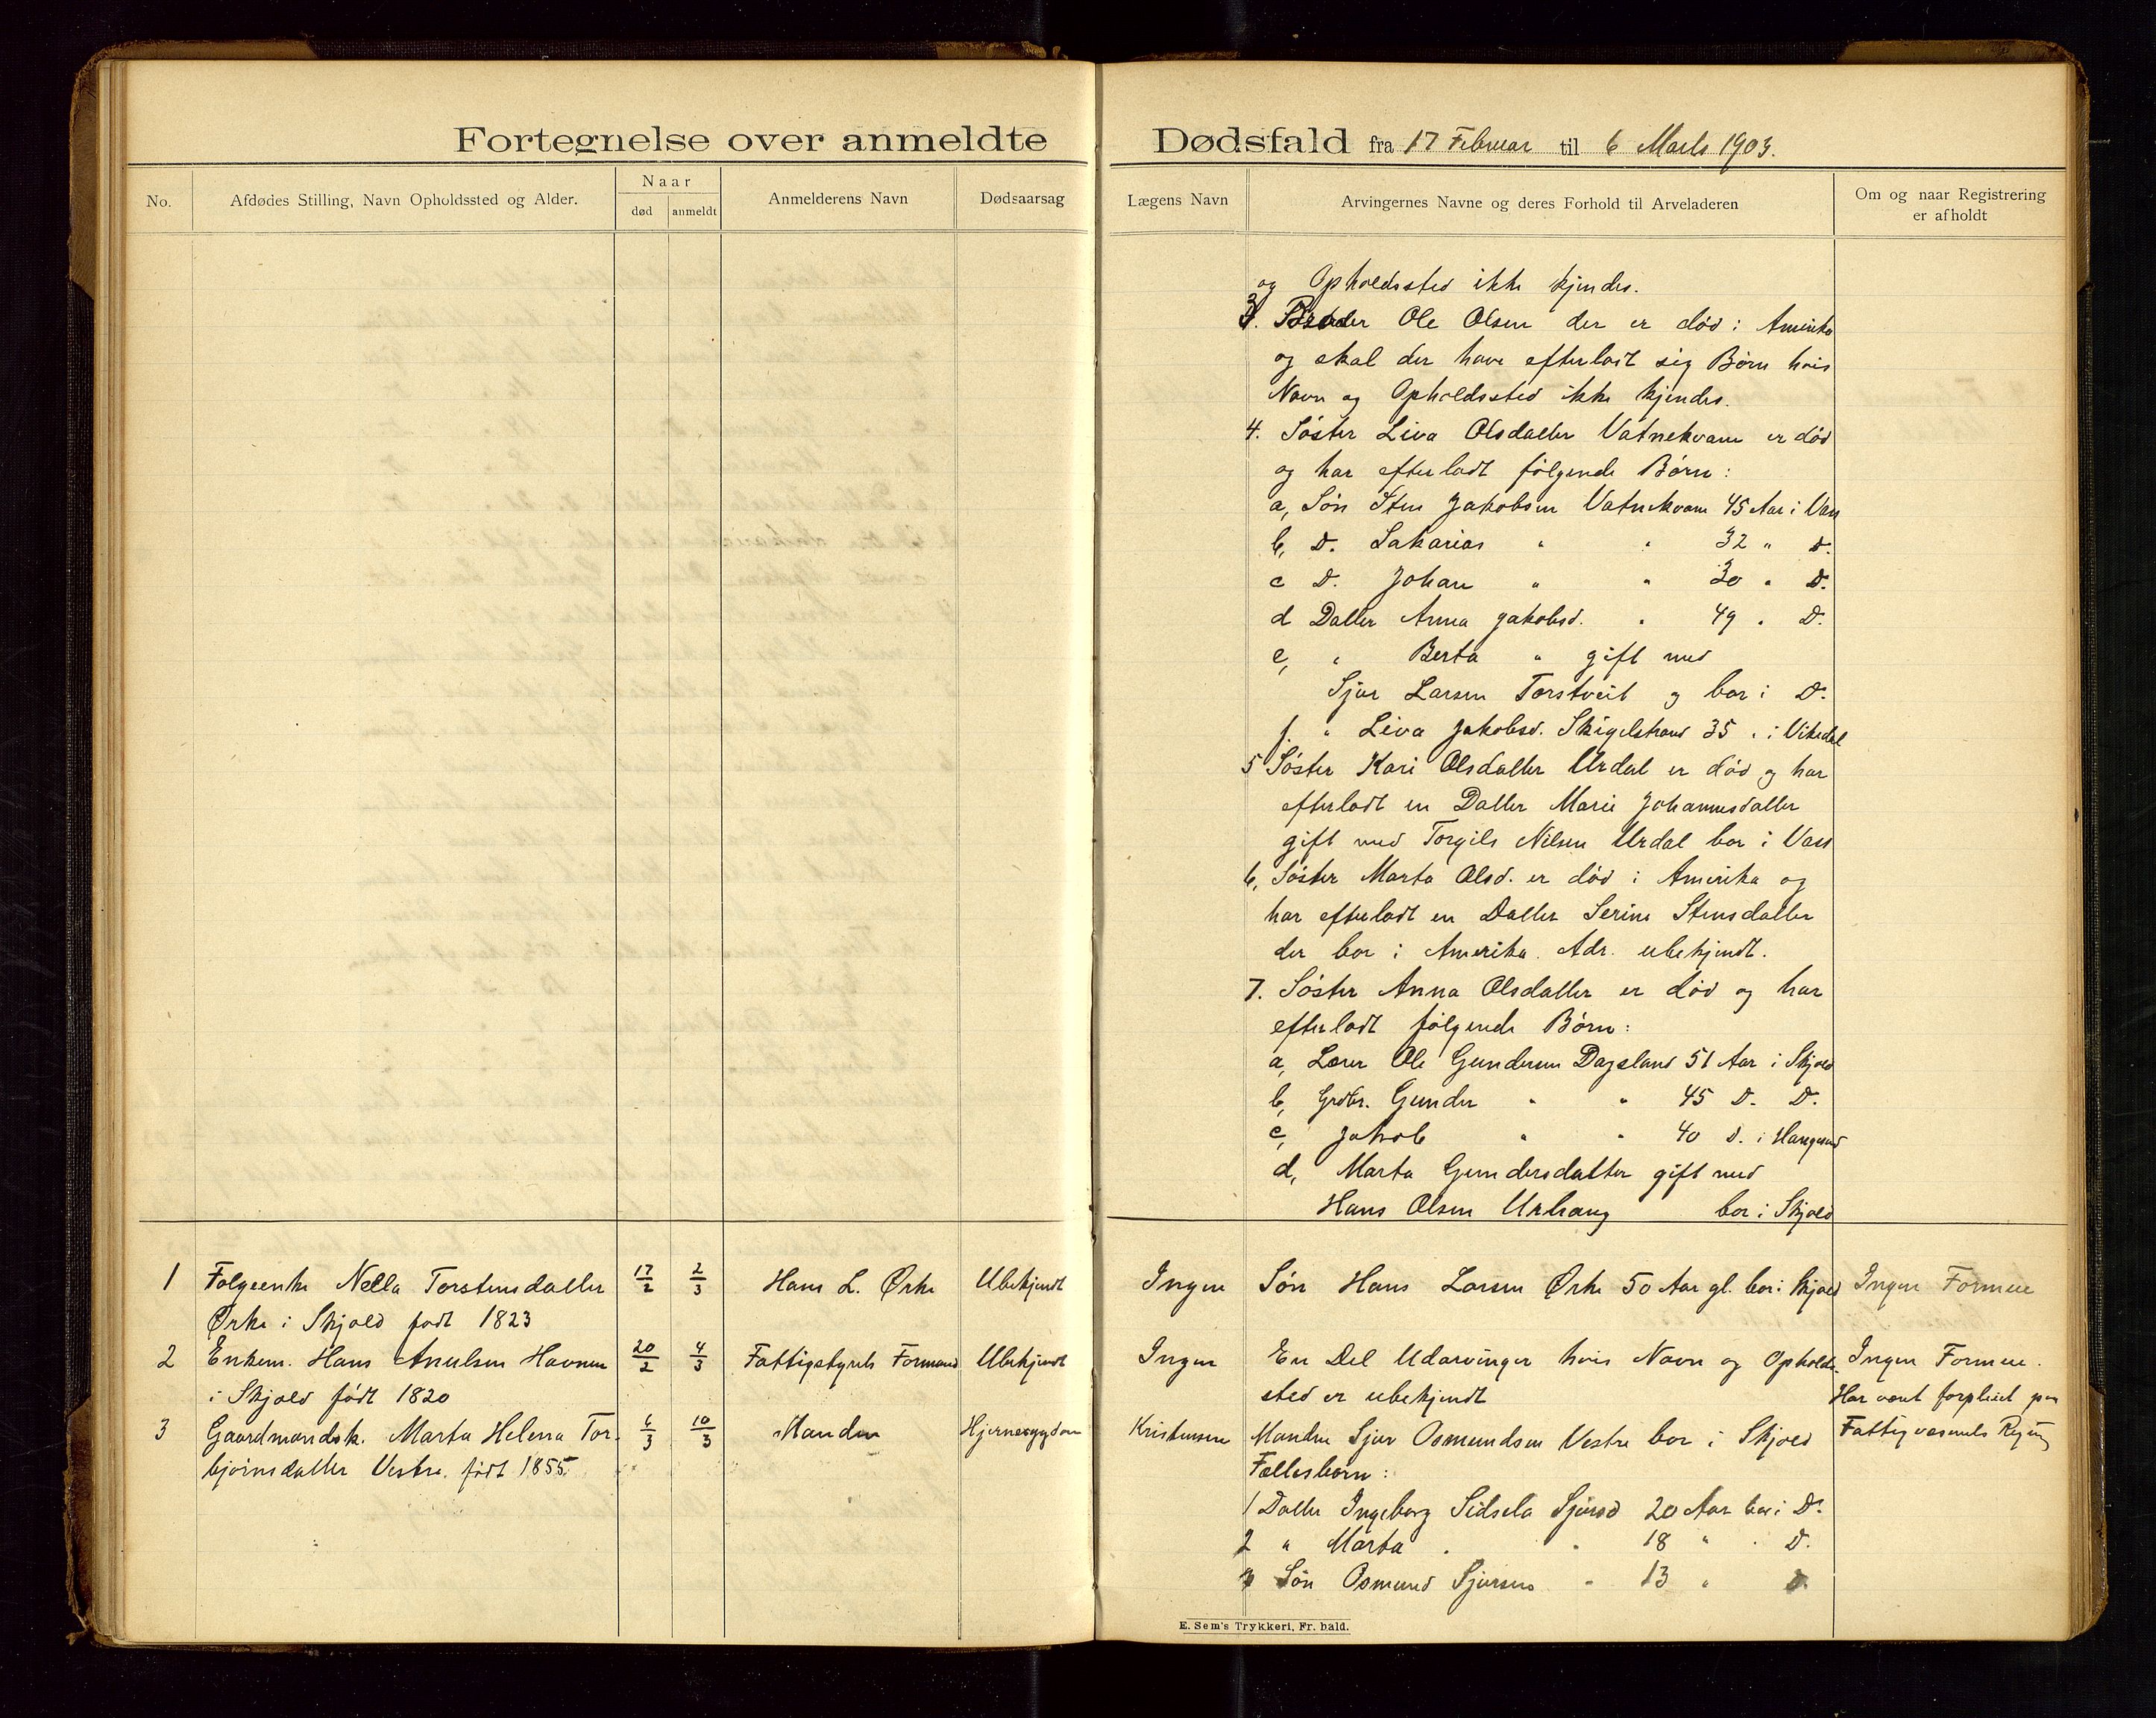 Fortegnelse over anmeldte Dødsfald fra 17 Februar til 6 Marts 1903.
No.
Afdødes Stilling, Navn Opholdssted og Alder.
Naar
død
anmeldt
Anmelderens Navn
Dødsaarsag
Lægens Navn
Arvingernes Navne og deres Forhold til Arveladeren
Om og naar Registrering
er afholdt
og Opholdssted ikke kjendes.
3. Broder Ole Olsen der er død i Amerika
og skal der have efterladt sig Børn hvis
Navn og Opholdssted ikke kjendes.
4. Søster Liva Olsdatter Vatnekvam er død
og har efterladt følgende Børn:
a, Søn Sten Jakobsen Vatnekvam 45 Aar i Vass
b, D. Sakarias " " 32 " D.
c D. Johan " " 30 " D.
d Datter Anna Jakobsd. " 49 " D.
e, " Berta " gift med
Sjur Larsen Torstveit og bor i D.
f. " Liva Jakobsd. Skigelstrand 35 " i Vikedal
5 Søster Kari Olsdatter Urdal er død og har
efterladt en Datter Marie Johannesdatter
gift med Torgils Nilsen Urdal bor i Vass
6, Søster Marta Olsd. er død i Amerika og
har efterladt en Datter Serine Stensdatter
der bor i Amerika. Adr. ubekjendt.
7. Søster Anna Olsdatter er død og har
efterladt følgende Børn:
a, Lærer Ole Gundersen Dagsland 51 Aar i Skjold
b, Grdbr. Gunder " " 45 D. D.
c, Jakob " " 40 D. i Haugesund
d, Marta Gundersdatter gift med
Hans Olsen Urhaug bor i Skjold
1 Folgeenke Nella Torstensdatter 17/2 2/3 Hans L. Ørke Ubekjendt Ingen Søn Hans Larsen Ørke 50 Aar gl. bor i Skjold Ingen Formue
Ørke i Skjold født 1823
2 Enkem. Hans Anulsen Havnen 20/2 4/3 Fattigstyrets Formand Ubekjendt Ingen En Del Udarvinger hvis Navn og Opholds- Ingen Formue.
i Skjold født 1820 sted er ubekjendt Har været forpleiet paa
3 Gaardmandsk. Marta Helena Tor- 6/3 10/3 Manden Hjernesygdom Kristensen Manden Sjur Osmundsen Vestre bor i Skjold Fattigvæsenets Regning
bjørnsdatter Vestre. født 1855. Fællesbørn:
1 Datter Ingeborg Sidsela Sjursd 20 Aar bor i D.
2 " Marta " " 18 " " D.
3 Søn Osmund Sjursen " 13 " D.
E. Sem's Trykkeri, Fr. hald.